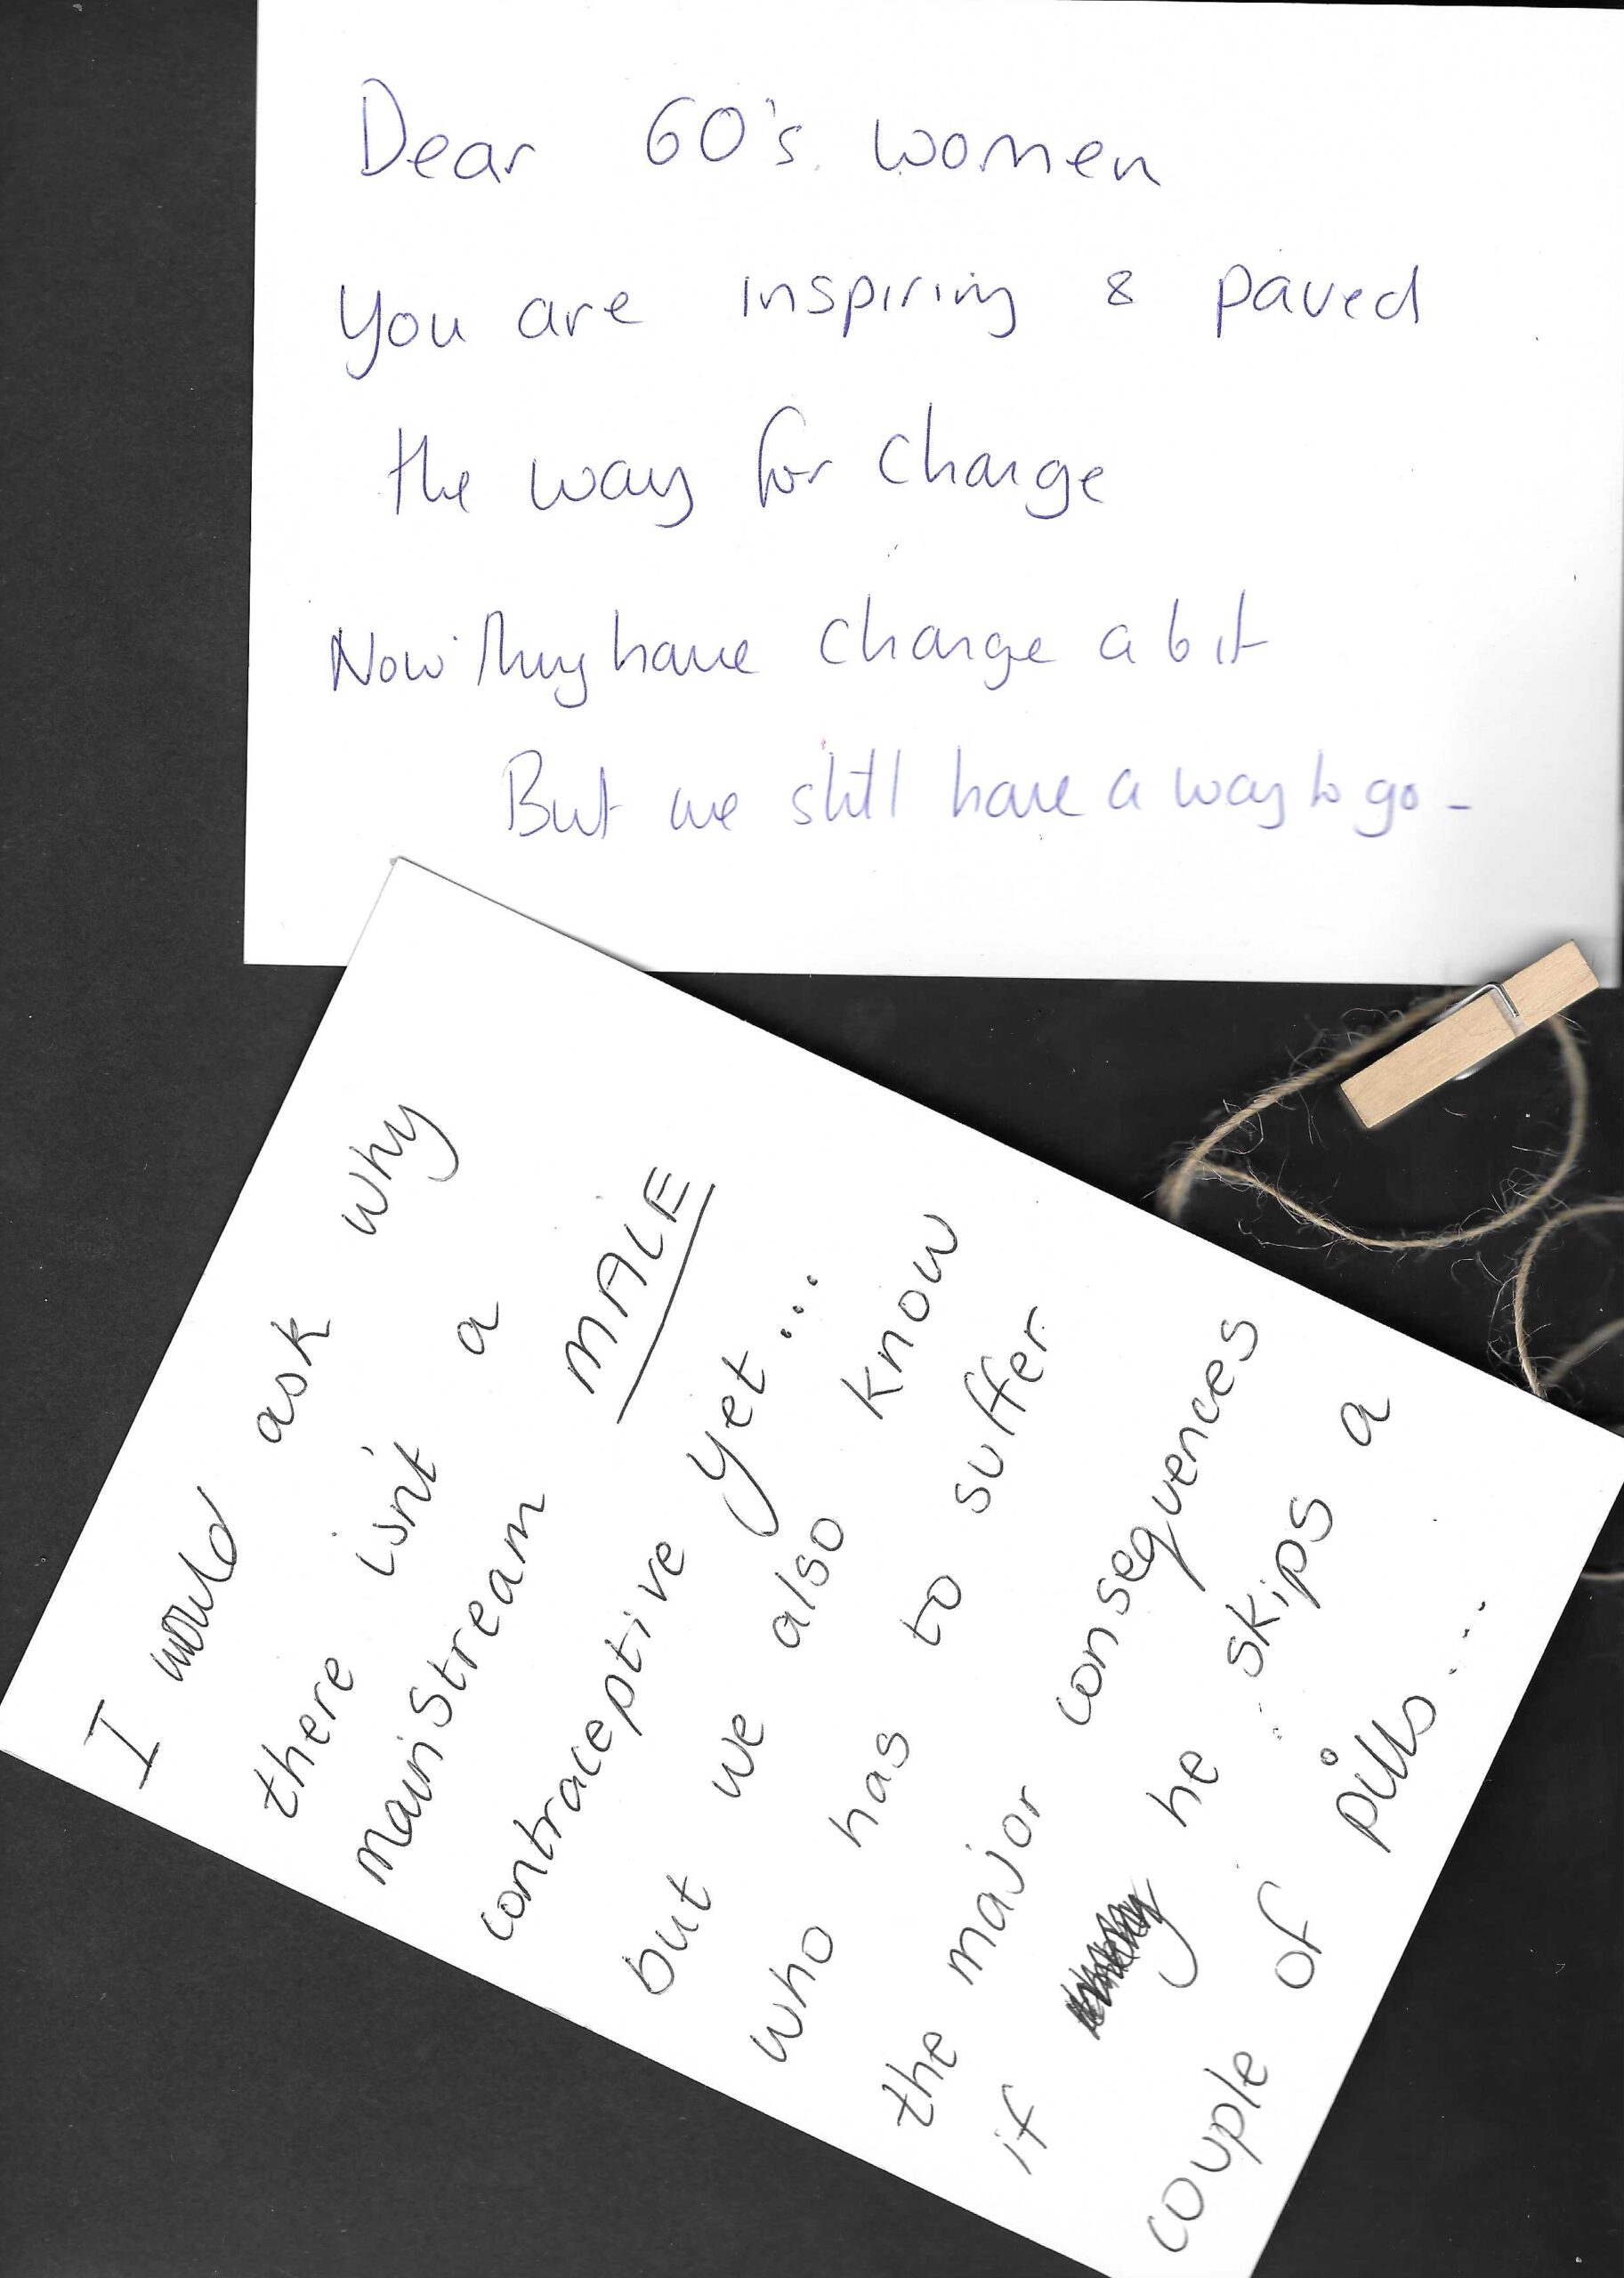 Dear 60's women
You are inspiring & paved
the way for change
Now they have change a bit
But we still have a way to go -
I would ask why
there isn't a
mainstream MALE
contraceptive yet...
but we also know
who has to suffer
the major consequences
if he skips a
couple of pills...